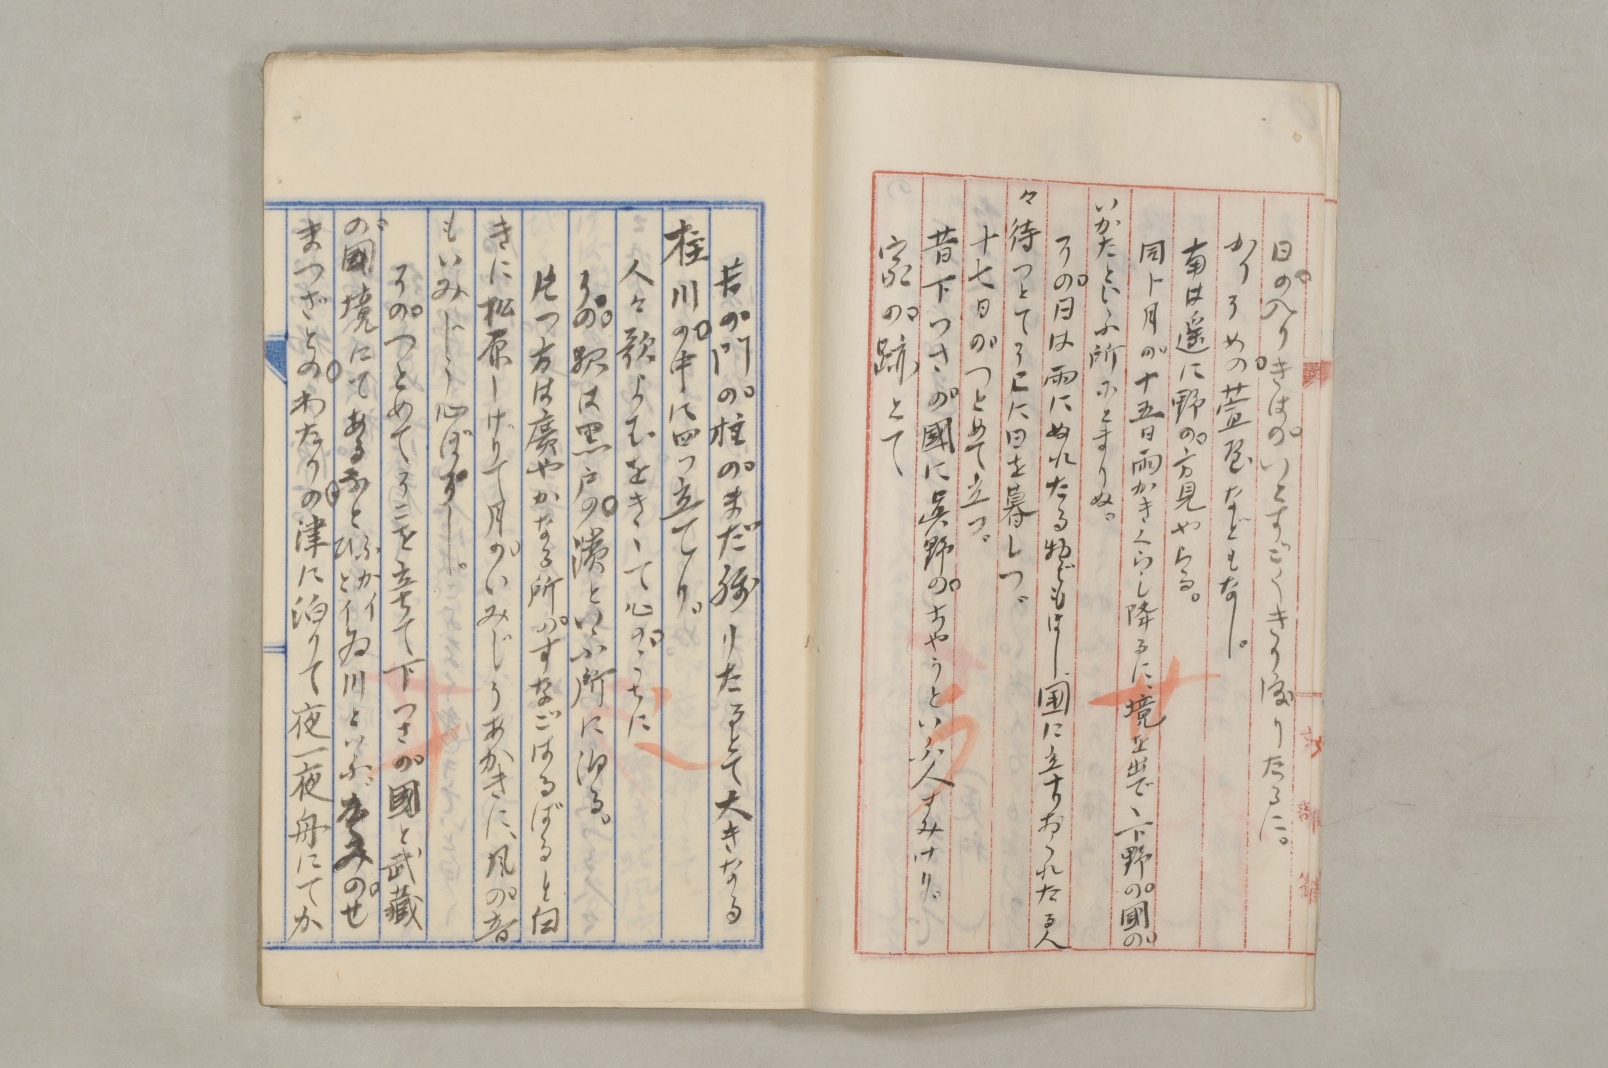 日の入りきはのいとすごくきり渡りたるに。
かりそめの萱屋などもなし。
南は遥に野の方見やらる。
同卜月の十五日雨かきくらし降るに、境を出で、下野の國の
いかたといふ所にとまりぬ。
その日は雨にぬれたる物どもほし國に立ちおくれたる人
々待つとてそこに日を暮しつ。
十七日のつとめて立つ。
昔下つさの國に眞野のちやうといふ人すみけり。
家の跡とて
昔の門の柱のまだ殘りたるとて大きなる
柱川の中に四つ立てり。
人々歌よむをきゝて心のうちに
その夜は黒戸の濱といふ所に泊る。
片つ方は廣やかなる所のすなごはるばると白
きに松原しげりて月のいみじうあかきに、風の音
もいみじう心ぼそし。
そのつとめてそこを立ちて下つさの國と武藏
の國境にてあるふとひとイゐ川といふがかみのせ
まつざとのわたりの津に泊りて夜一夜舟にてか